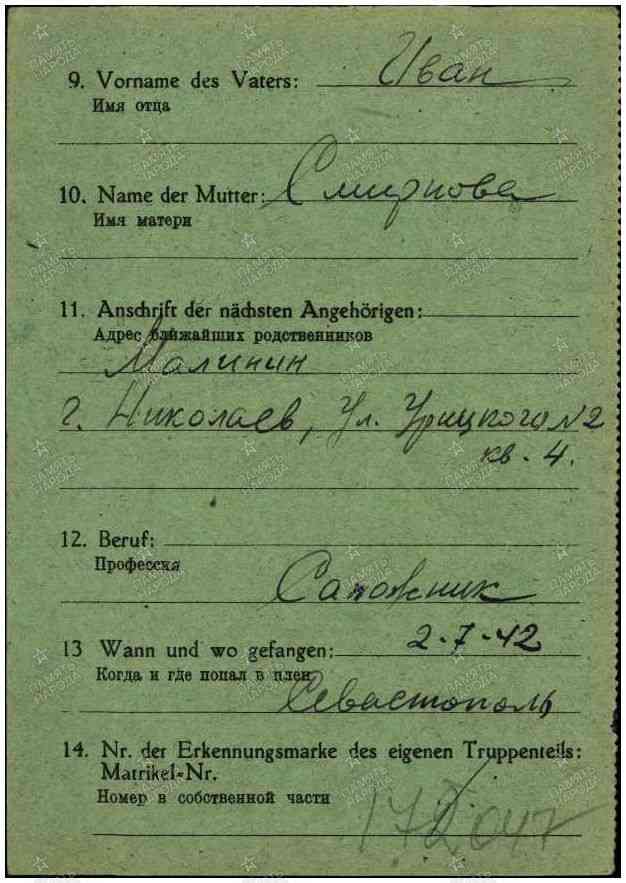 9. Vorname des Vaters: Иван
Имя отца
10. Name der Mutter: Смирнова
Имя матери
11. Anschrift der nächsten Angehörigen:
Адрес ближайших родственников
Малинин
г. Николаев, Ул. Урицкого N2
кв. 4.
12. Beruf:
Профессия
Сапожник
13 Wann und wo gefangen: 2-7-42
Когда и где попал в плен
Севастополь
14. Nr. der Erkennungsmarke des eigenen Truppenteils:
Matrikel-Nr.
Номер в собственной части
ПАМЯТЬ НАРОДА